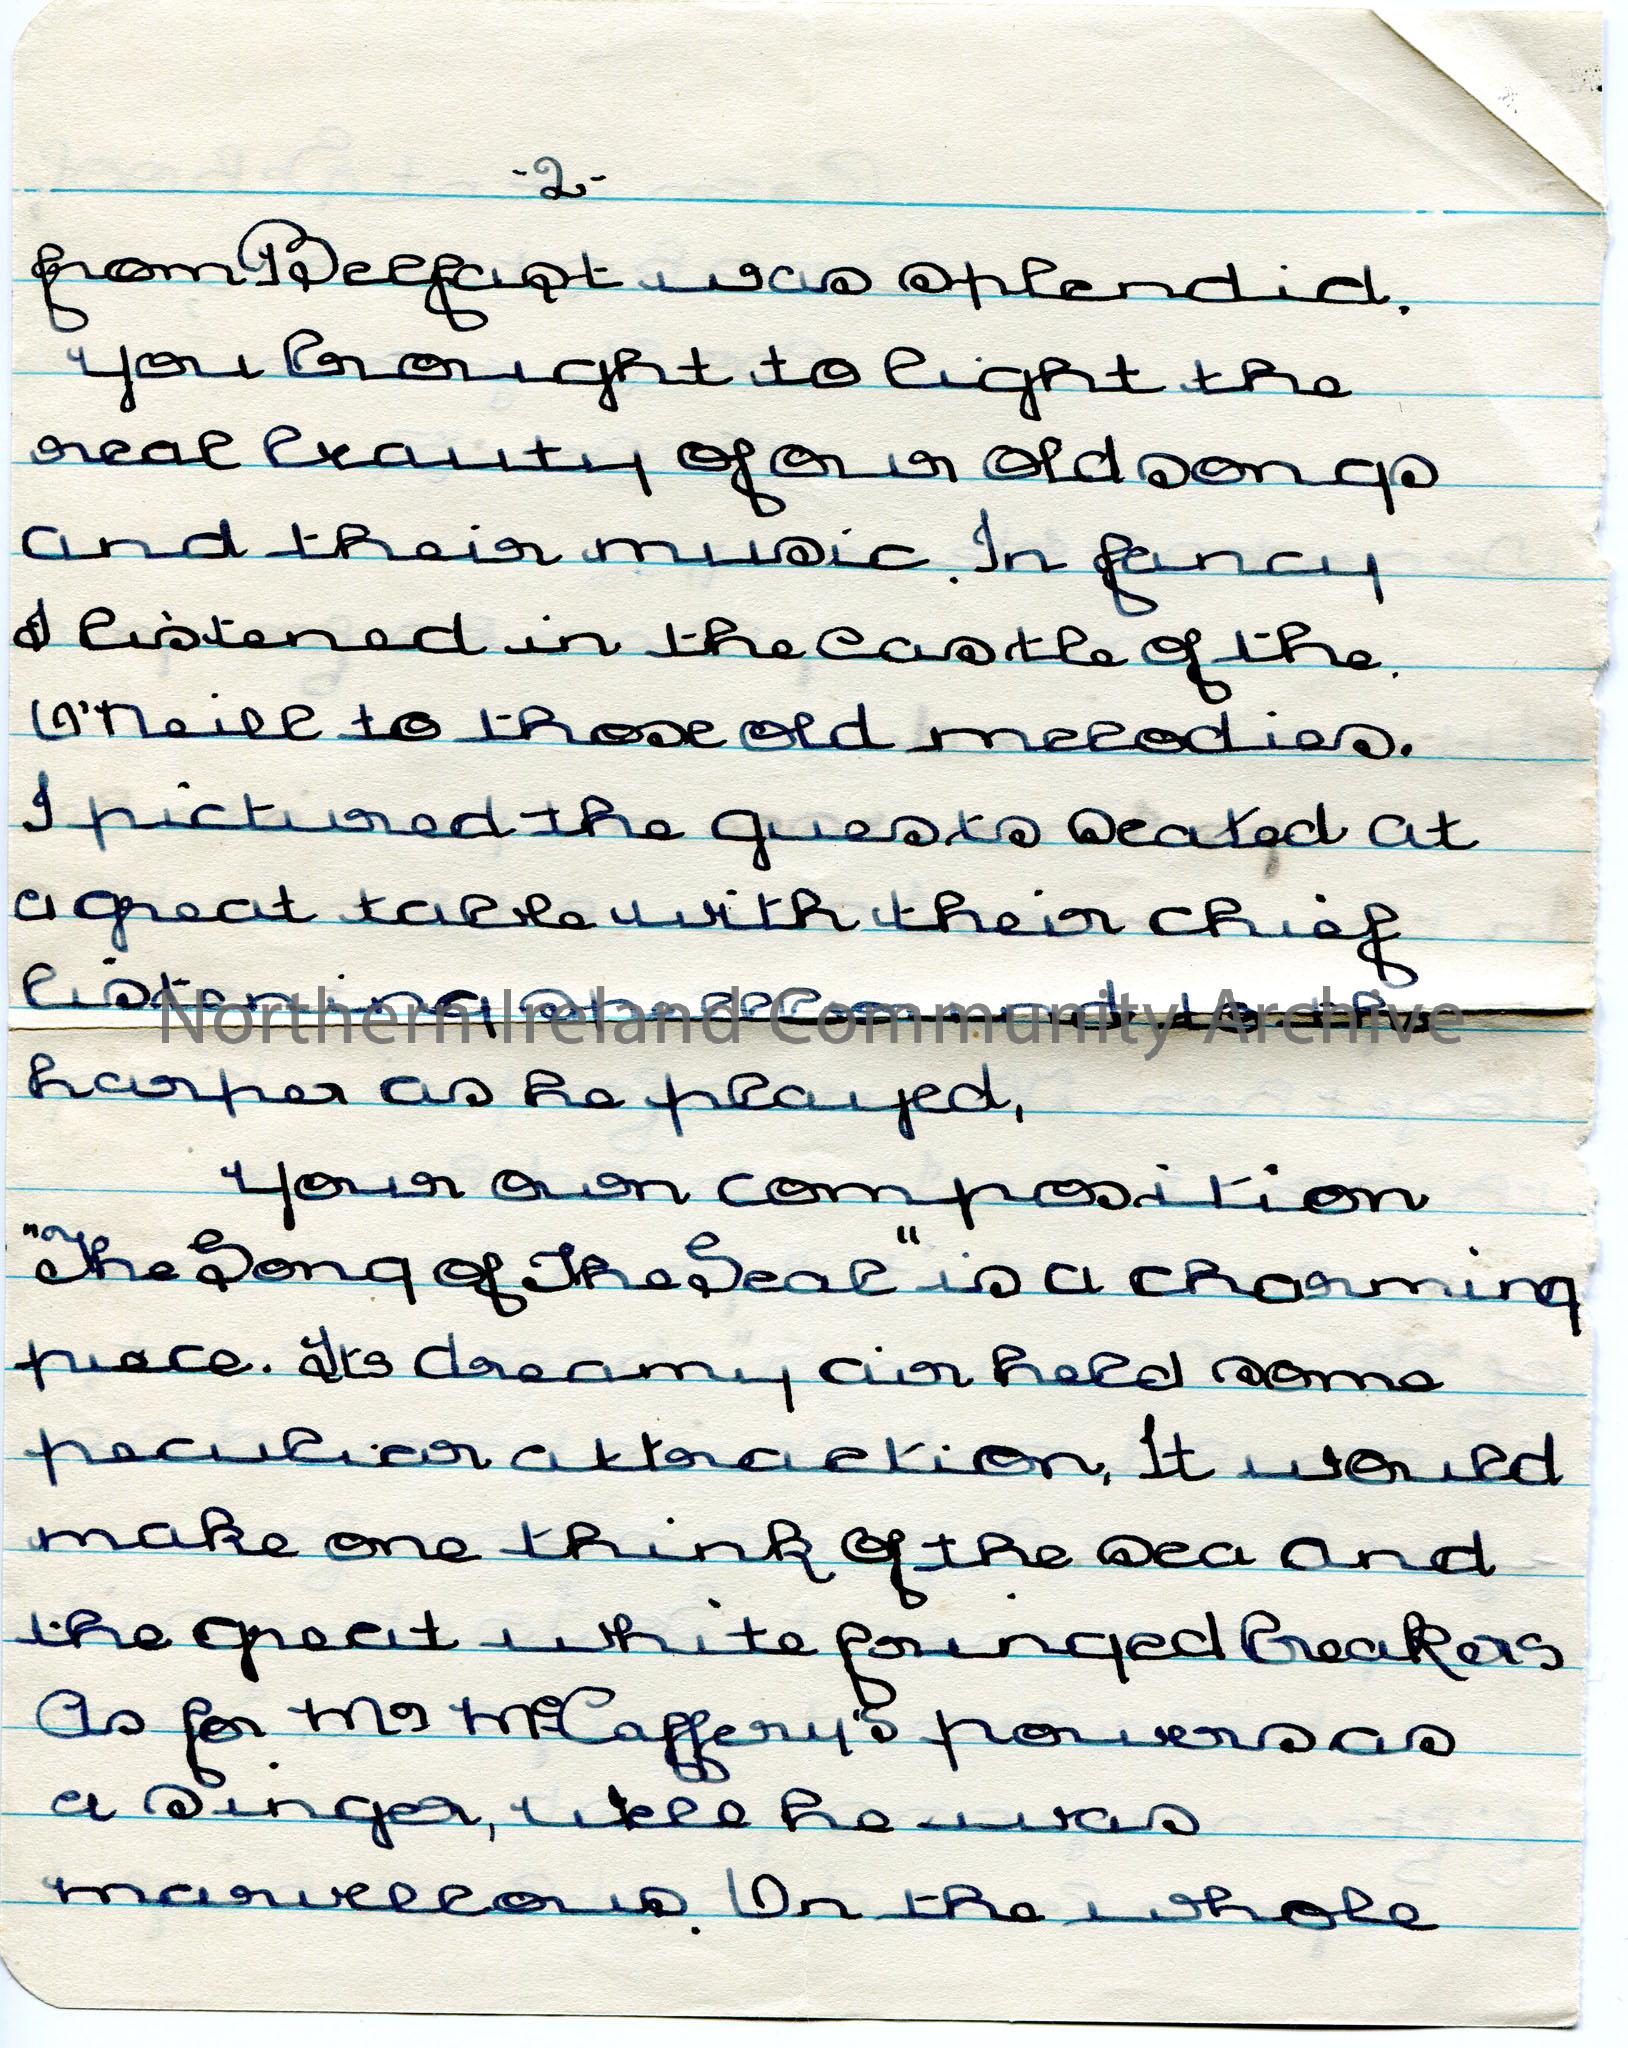 -2-
from Belfast was splendid.
You brought to light the
real beauty of our old songs
and their music. In fancy
I listened in the castle of the
O'Neill to those old melodies.
I pictured the guests seated at
a great table with their chief
listening spellbound to the
Northern Ireland Community Archive
harper as he played,
Your own composition
"The Song of The Seal" is a charming
piece. Its dreamy air held some
peculiar attraction, It would
make one think of the sea and
the great white fringed breakers
As for Mr McCaffery's powers as
a singer, well he was
marvellous. On the whole